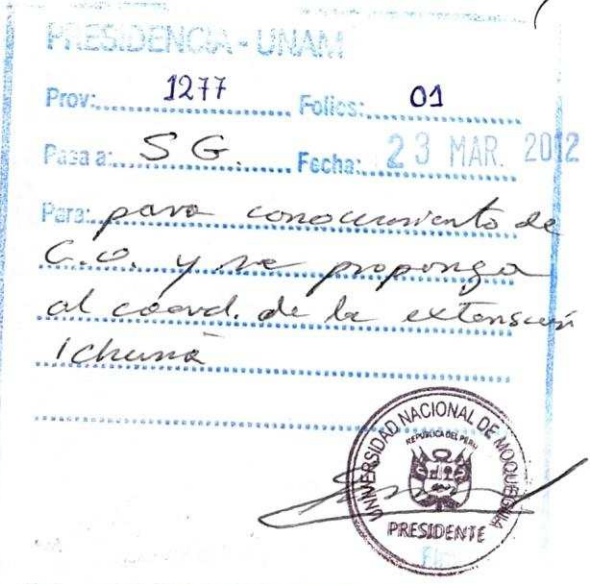 PRESIDENCIA - UNAM
Prov: 1277 Folios: 01
Pasa a: S G. Fecha: 23 MAR. 2012
Para: para conocimiento de
C.O. y se proponga
al coord. de la extensión
Ichuña
UNIVERSIDAD NACIONAL DE MOQUEGUA
REPUBLICA DEL PERU
PRESIDENTE